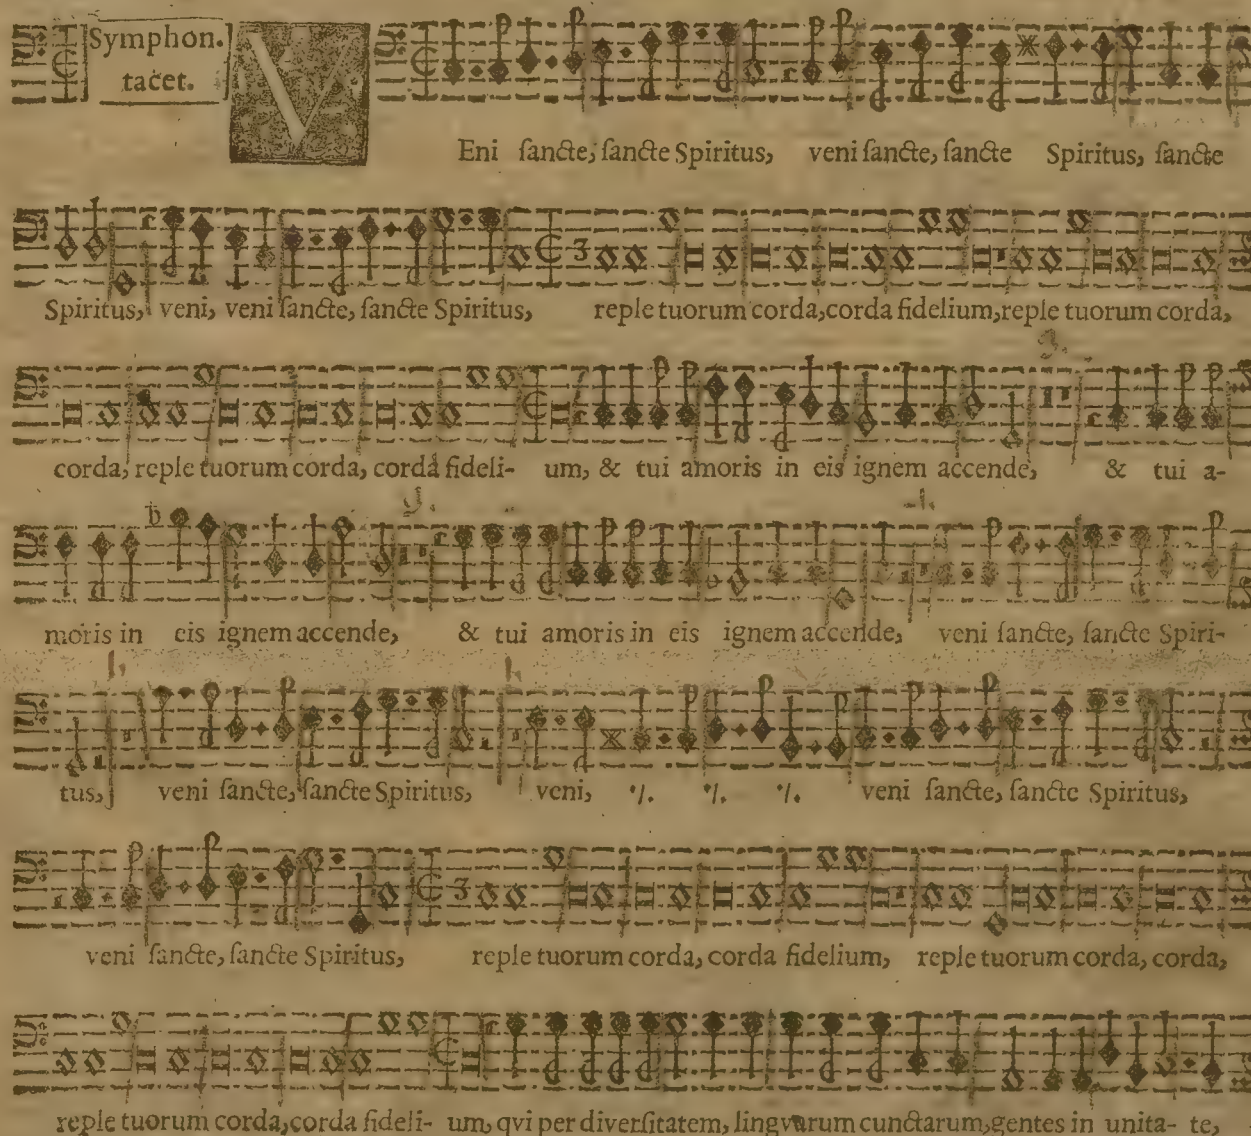 Symphon.
tacet.
VEni ſancte, ſancte Spiritus, veni ſancte, ſancte Spiritus, ſancte
Spiritus, veni, veni ſancte, ſancte Spiritus, reple tuorum corda, corda fidelium, reple tuorum corda,
corda, reple tuorum corda, corda fideli- um, & tui amoris in eis ignem accende, & tui a-
moris in eis ignem accende, & tui amoris in eis ignem accende, veni ſancte, ſancte Spiri-
tus, veni ſancte, ſancte Spiritus, veni, ./. ./. ./. veni ſancte, ſancte Spiritus,
veni ſancte, ſancte Spiritus, reple tuorum corda, corda fidelium, reple tuorum corda, corda,
reple tuorum corda, corda fideli- um, qvi per diverſitatem, lingvarum cunctarum, gentes in unita- te,